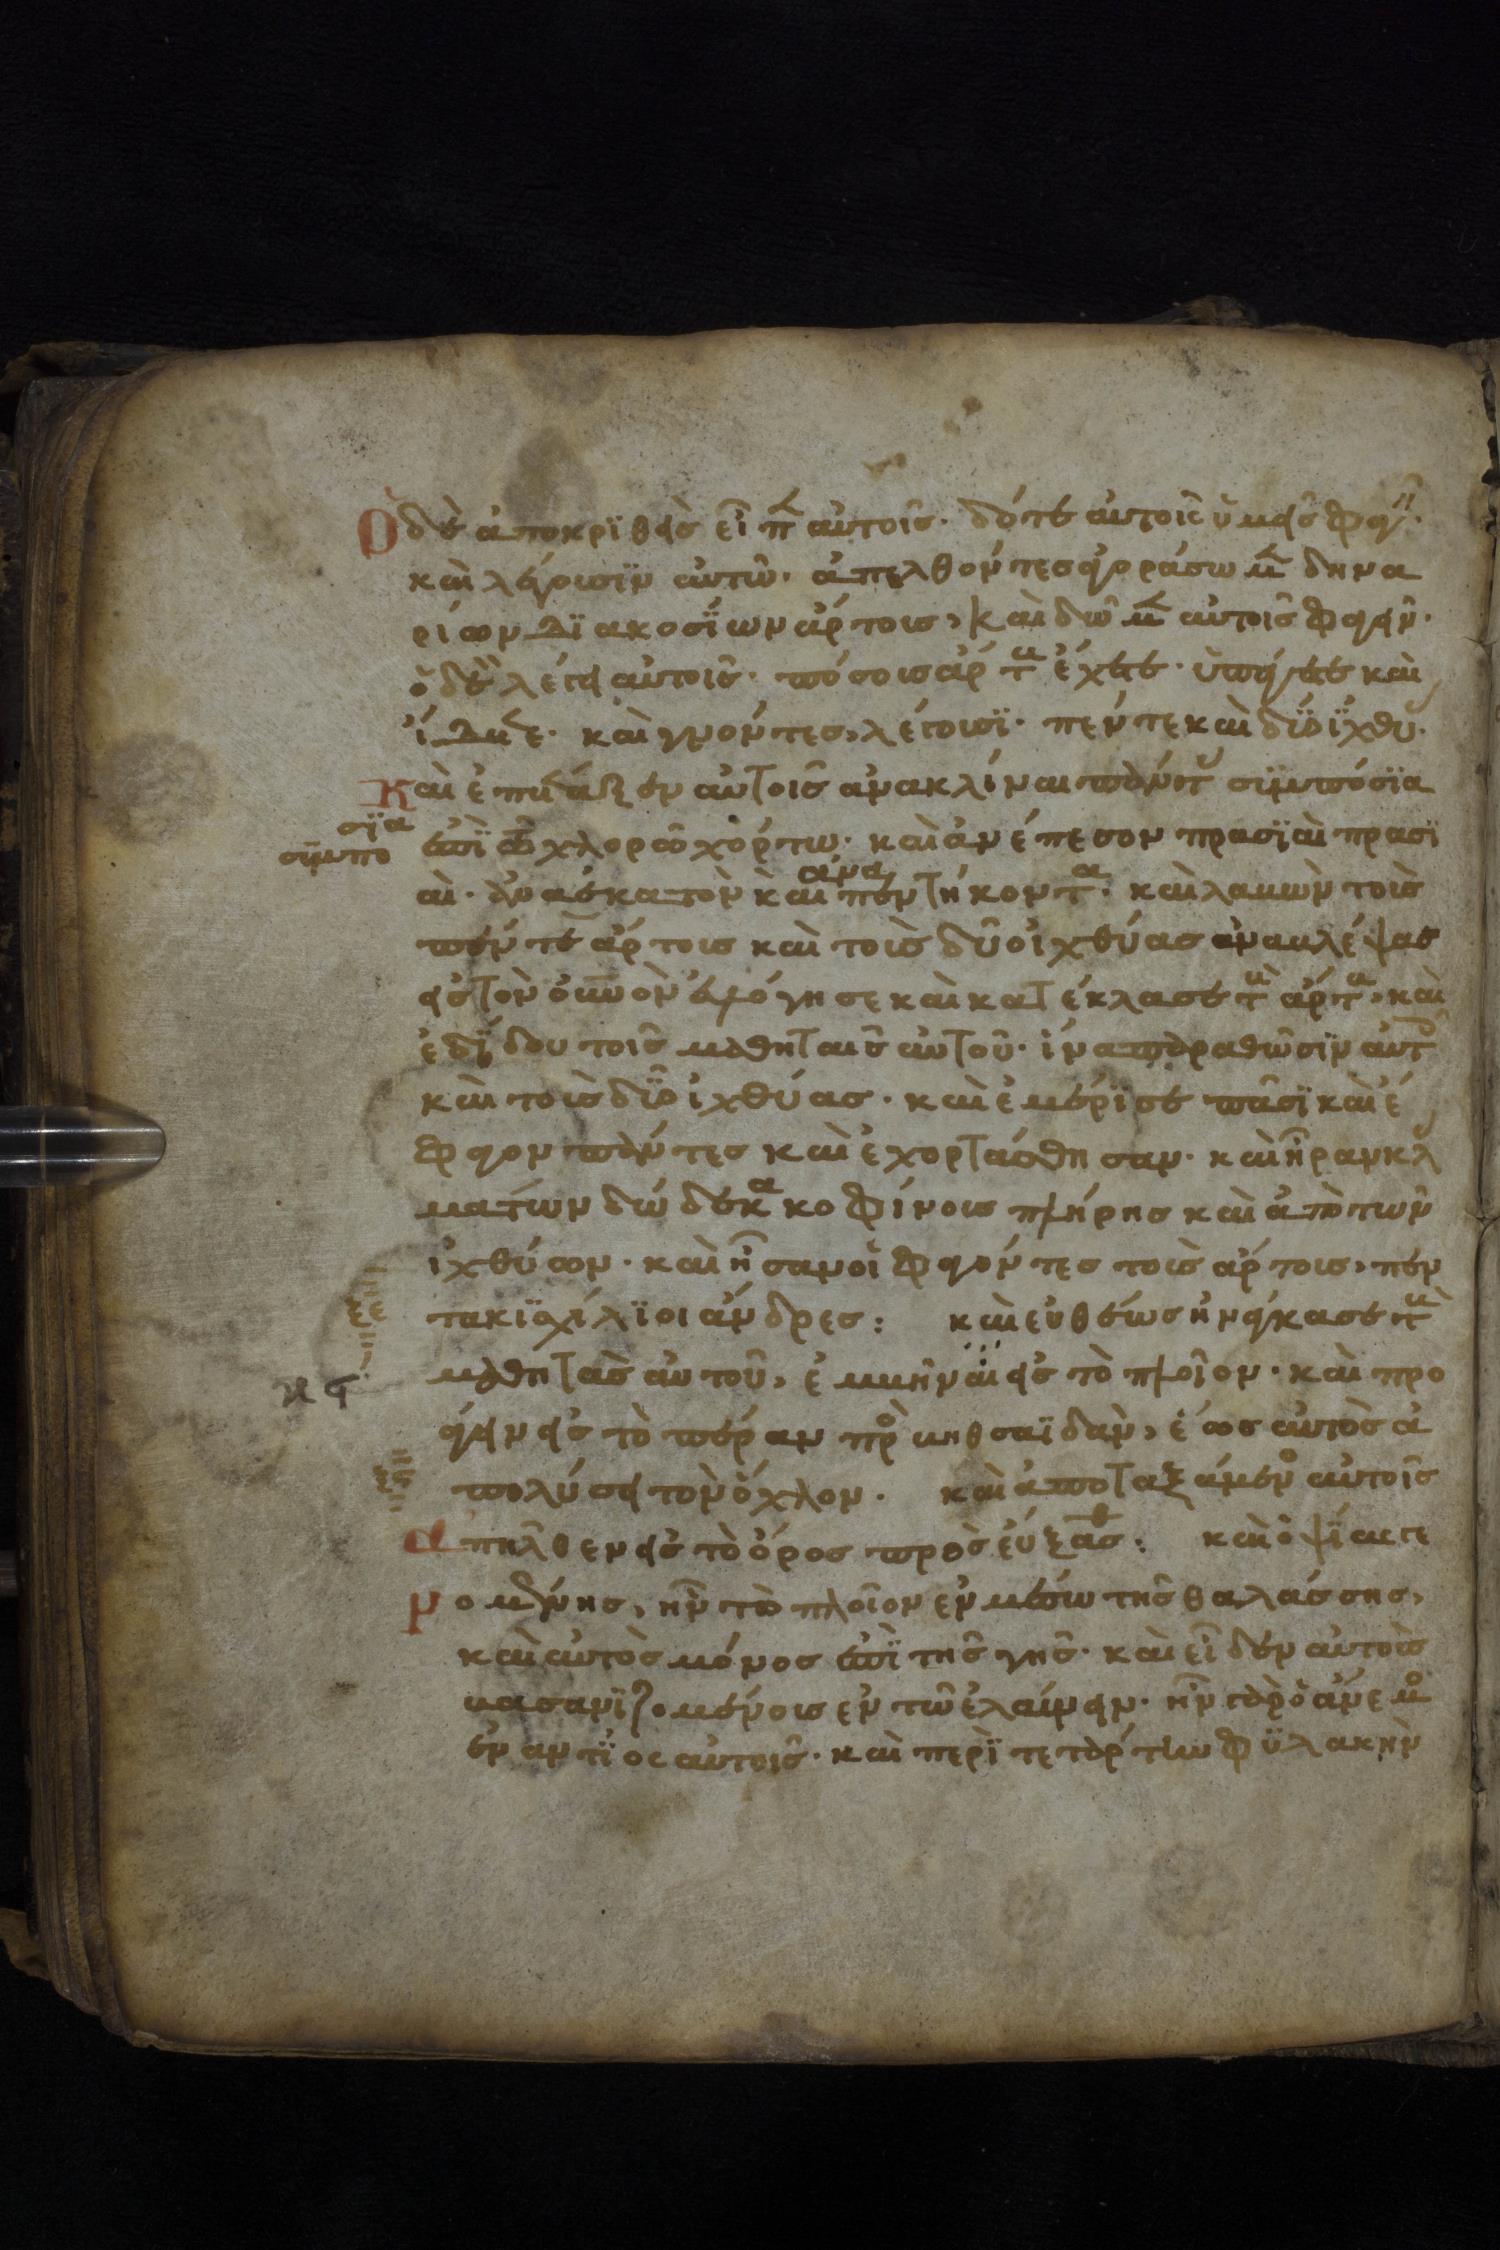 Ὁ δὲ ἀποκριθεὶς εἶπ αὐτοῖς· δότε αὐτοῖς ὑμεῖς φαγεῖ·
καὶ λέγουσϊν αὐτῶ· ἀπελθόντες ἀγοράσωμ δηνα
ρίων δϊακοσΐων ἄρτους, καὶ δῶμ αὐτοῖς φαγεῖν·
ὁ δὲ λέγει αὐτοῖς· πόσους ἄρτ ἔχετε· ὑπάγετε καὶ
ἴδετε· καὶ γνόντες, λέγουσϊ· πέντε καὶ δύο ἰχθύ·
Καὶ ἐπέταξεν αὐτοῖς ἀνακλίναι πάντ συμπόσϊα
σϊα
συμπο
ἐπὶ τῶ χλορῶ χόρτω· καὶ ἀνέπεσον πρασϊαὶ πρασϊ
αὶ· ἀνα ἑκατὸν καὶ ἀνα πεντήκοντα· καὶ λαβὼν τοὺς
πέντε ἄρτους καὶ τοὺς δύο ἰχθύας ἀναβλέψας
εἰς τὸν οὐνὸν εὐλόγησε καὶ κατέκλασε τ ἄρτ, καὶ
ἐδΐδου τοῖς μαθηταῖς αὐτοῦ· ἵνα παραθῶσϊν αὐτ
καὶ τοὺς δύο ἰχθύας· καὶ ἐμέρϊσε πᾶσϊ καὶ ἔ
φαγον πάντες καὶ ἐχορτάσθησαν· καὶ ἦραν κλ
μάτων δώδεκα κοφίνους πλήρης καὶ ἀπὸ τῶν
ἰχθύων· καὶ ἦσαν οἱ φαγόντες τοὺς ἄρτους, πεν
τακϊχίλϊοι ἄνδρες: καὶ εὐθέως ἠνάγκασε τ
ξε
μαθητὰς αὐτοῦ, ἐμβῆναι εἰς τὸ πλοῖον· καὶ προ
άγειν εἰς τὸ πέραν πρὸ βηθσαϊδὰν, ἕως αὐτὸς ἀ
πολύσει τὸν ὄχλον· καὶ ἀποταξάμενο αὐτοῖς
ξς
ἀπῆλθεν εἰς τὸ ὄρος προσεύξασθ: καὶ ὀψΐας γε
νομένης, ἦν τὸ πλοῖον ἐν μέσω τῆς θαλάσσης,
καὶ αὐτὸς μόνος ἐπὶ τῆς γῆς· καὶ εἶδεν αὐτοὺς
βασανϊζομένους ἐν τῶ ἐλαύνειν· ἦν γὰρ ὁ ἄνεμο
ἐναντΐος αὐτοῖς· καὶ περὶ τετάρτην φϋλακὴν